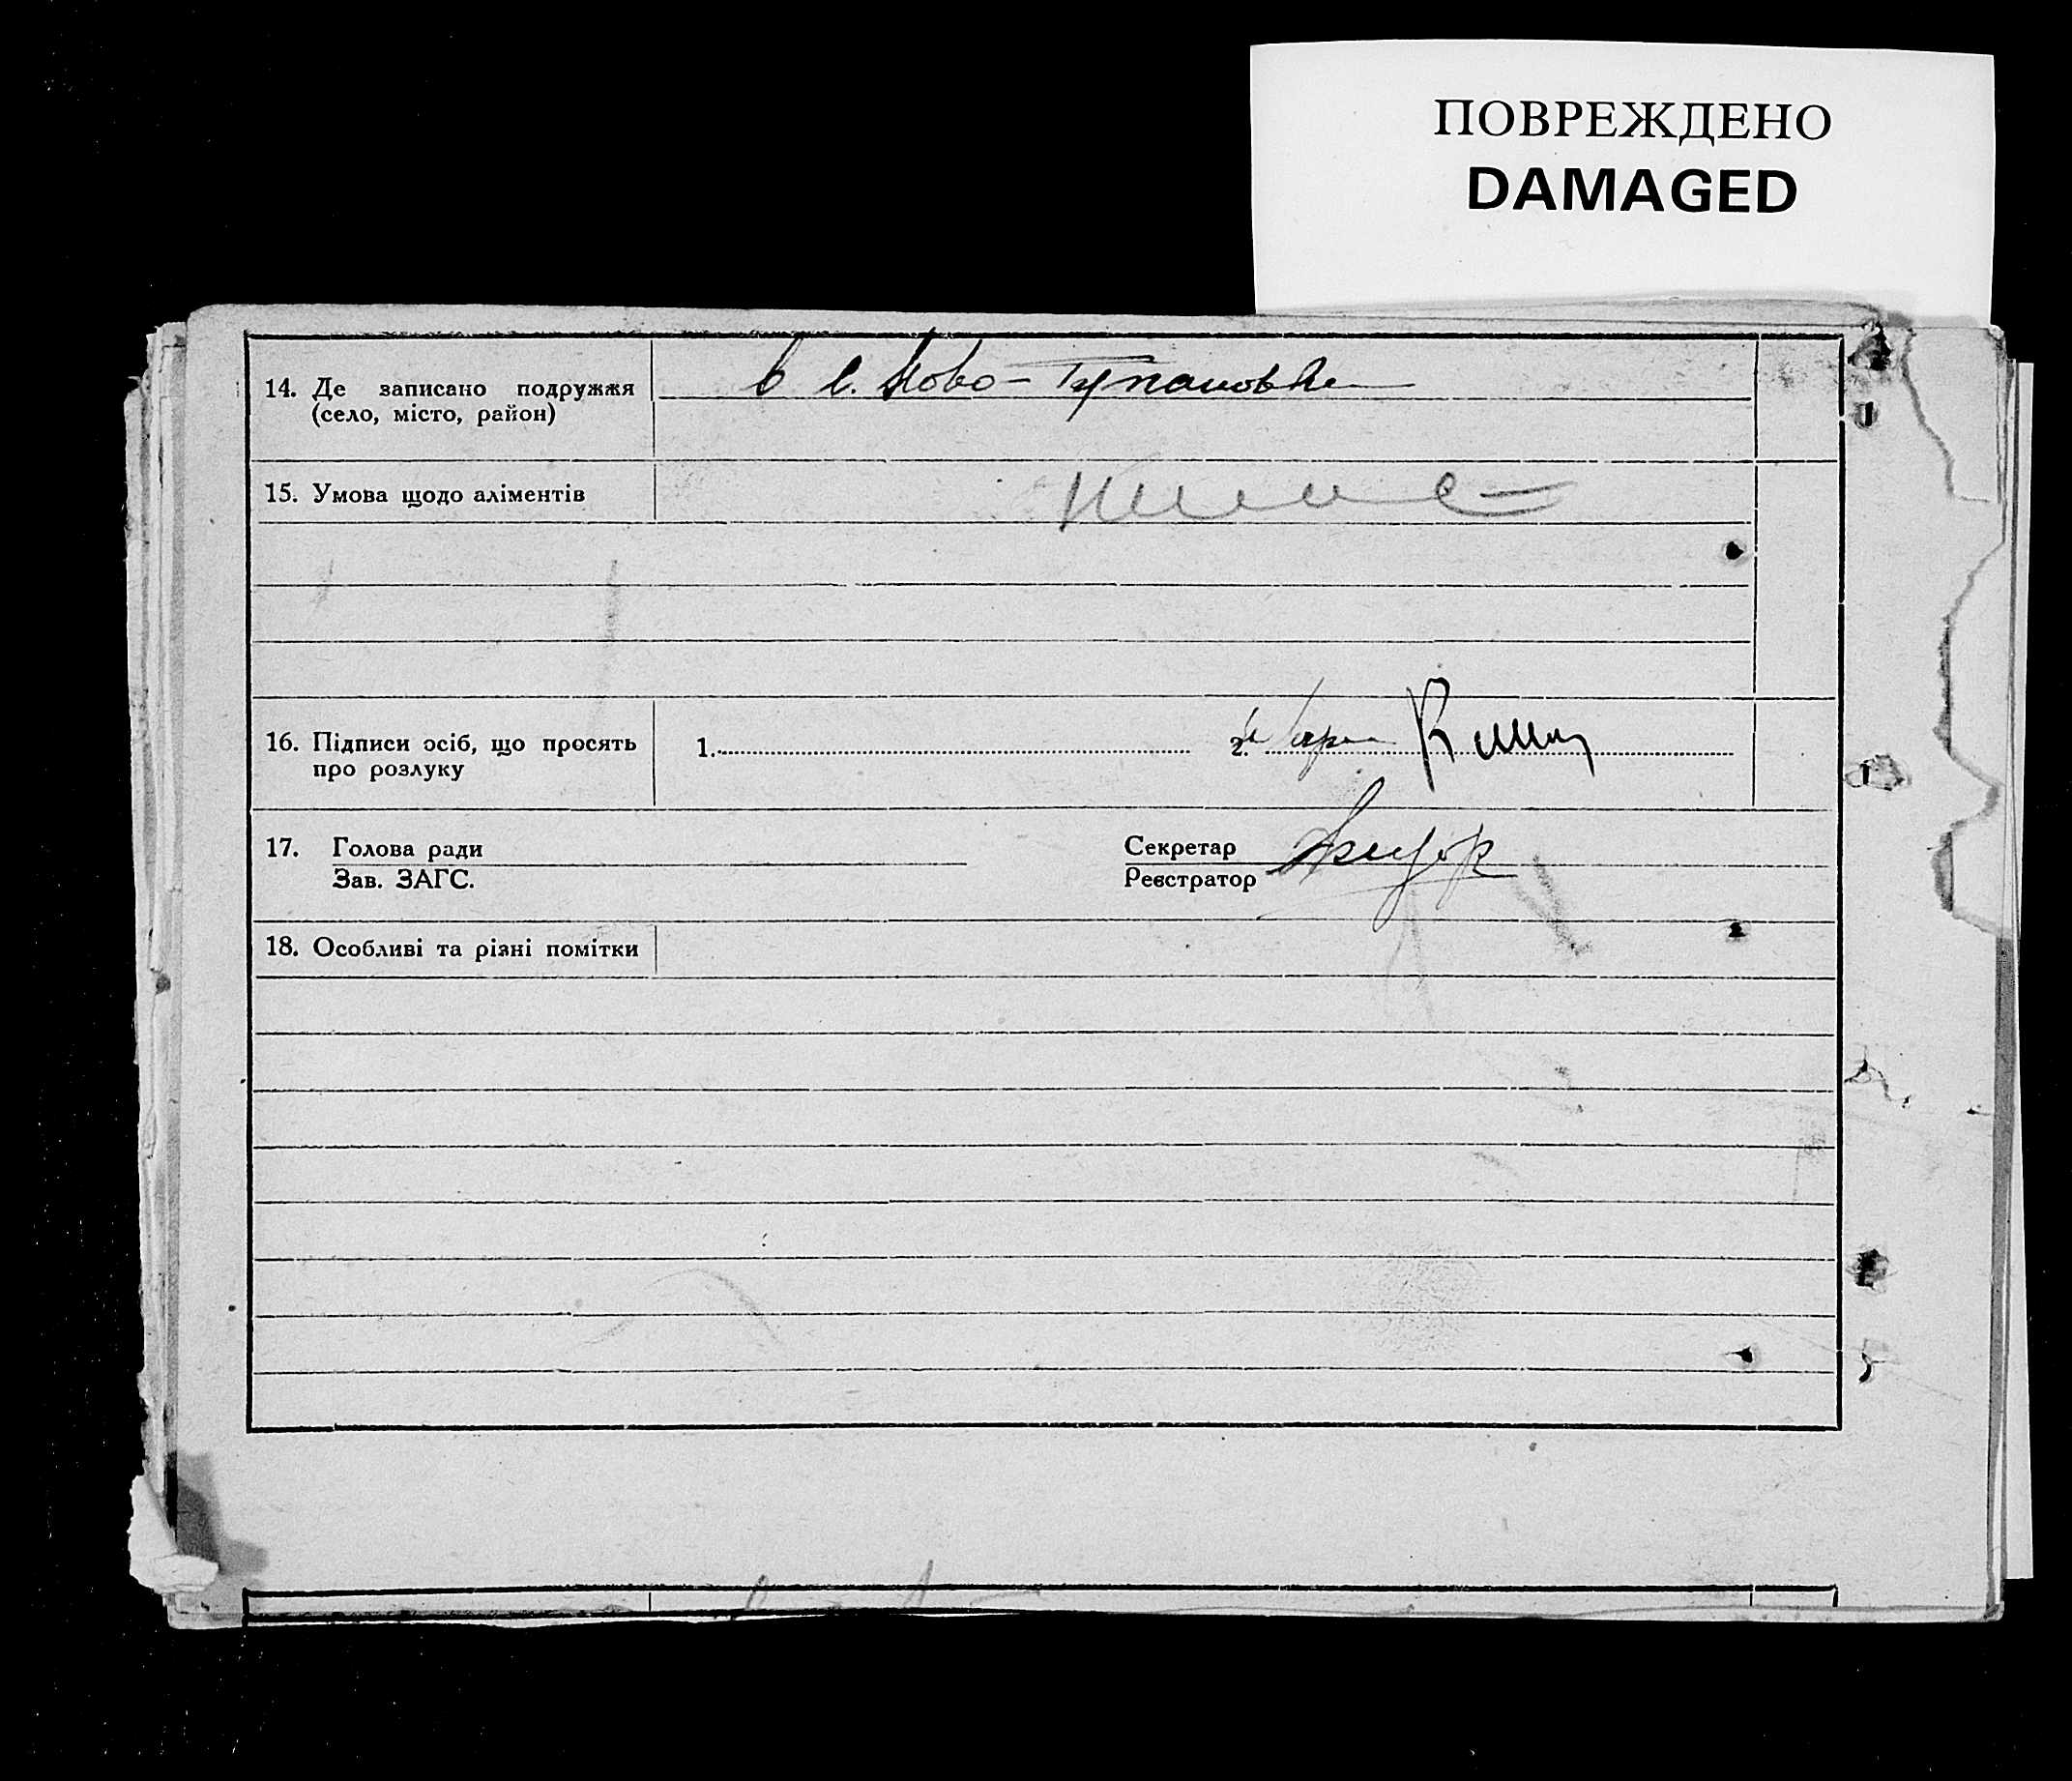 ПОВРЕЖДЕНО
DAMAGED
14. Де записано подружжя в с. Ново-
(село, місто, район)
15. Умова щодо аліментів
16. Підписи осіб, що просять 1. 2.
про розлуку
17. Голова ради Секретар
Зав. ЗАГС. Реєстратор
18. Особливі та різні помітки